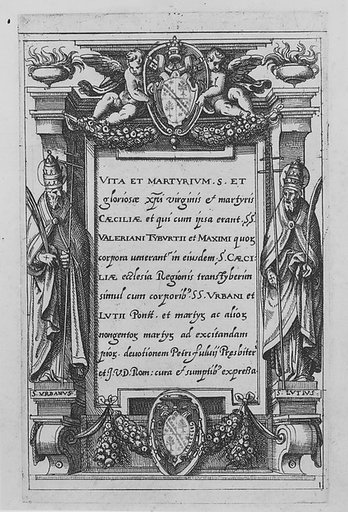 VITA ET MARTYRIVM . S . ET
gloriosæ xp̃i virginis & martyris
CÆCILIÆ et qui cum ipsa erant . SS
VALERIANI TYBVRTII et MAXIMI quoȝ
corpora venerantʳ in eiusdem . S . CÆCI
LIÆ ecclesia Regionis transtyberim
simul cum corporibꝰ SS . VRBANI et
LVTII Pont. et martyȝ ac alioȝ
nongentoȝ martyȝ ad excitandam
pioȝ . devotionem Petri Iulii Presbiter
et I.V.D. Rom : cura & sumptibꝰ expressa
S . VRBANVS
S . LVTIVS
1